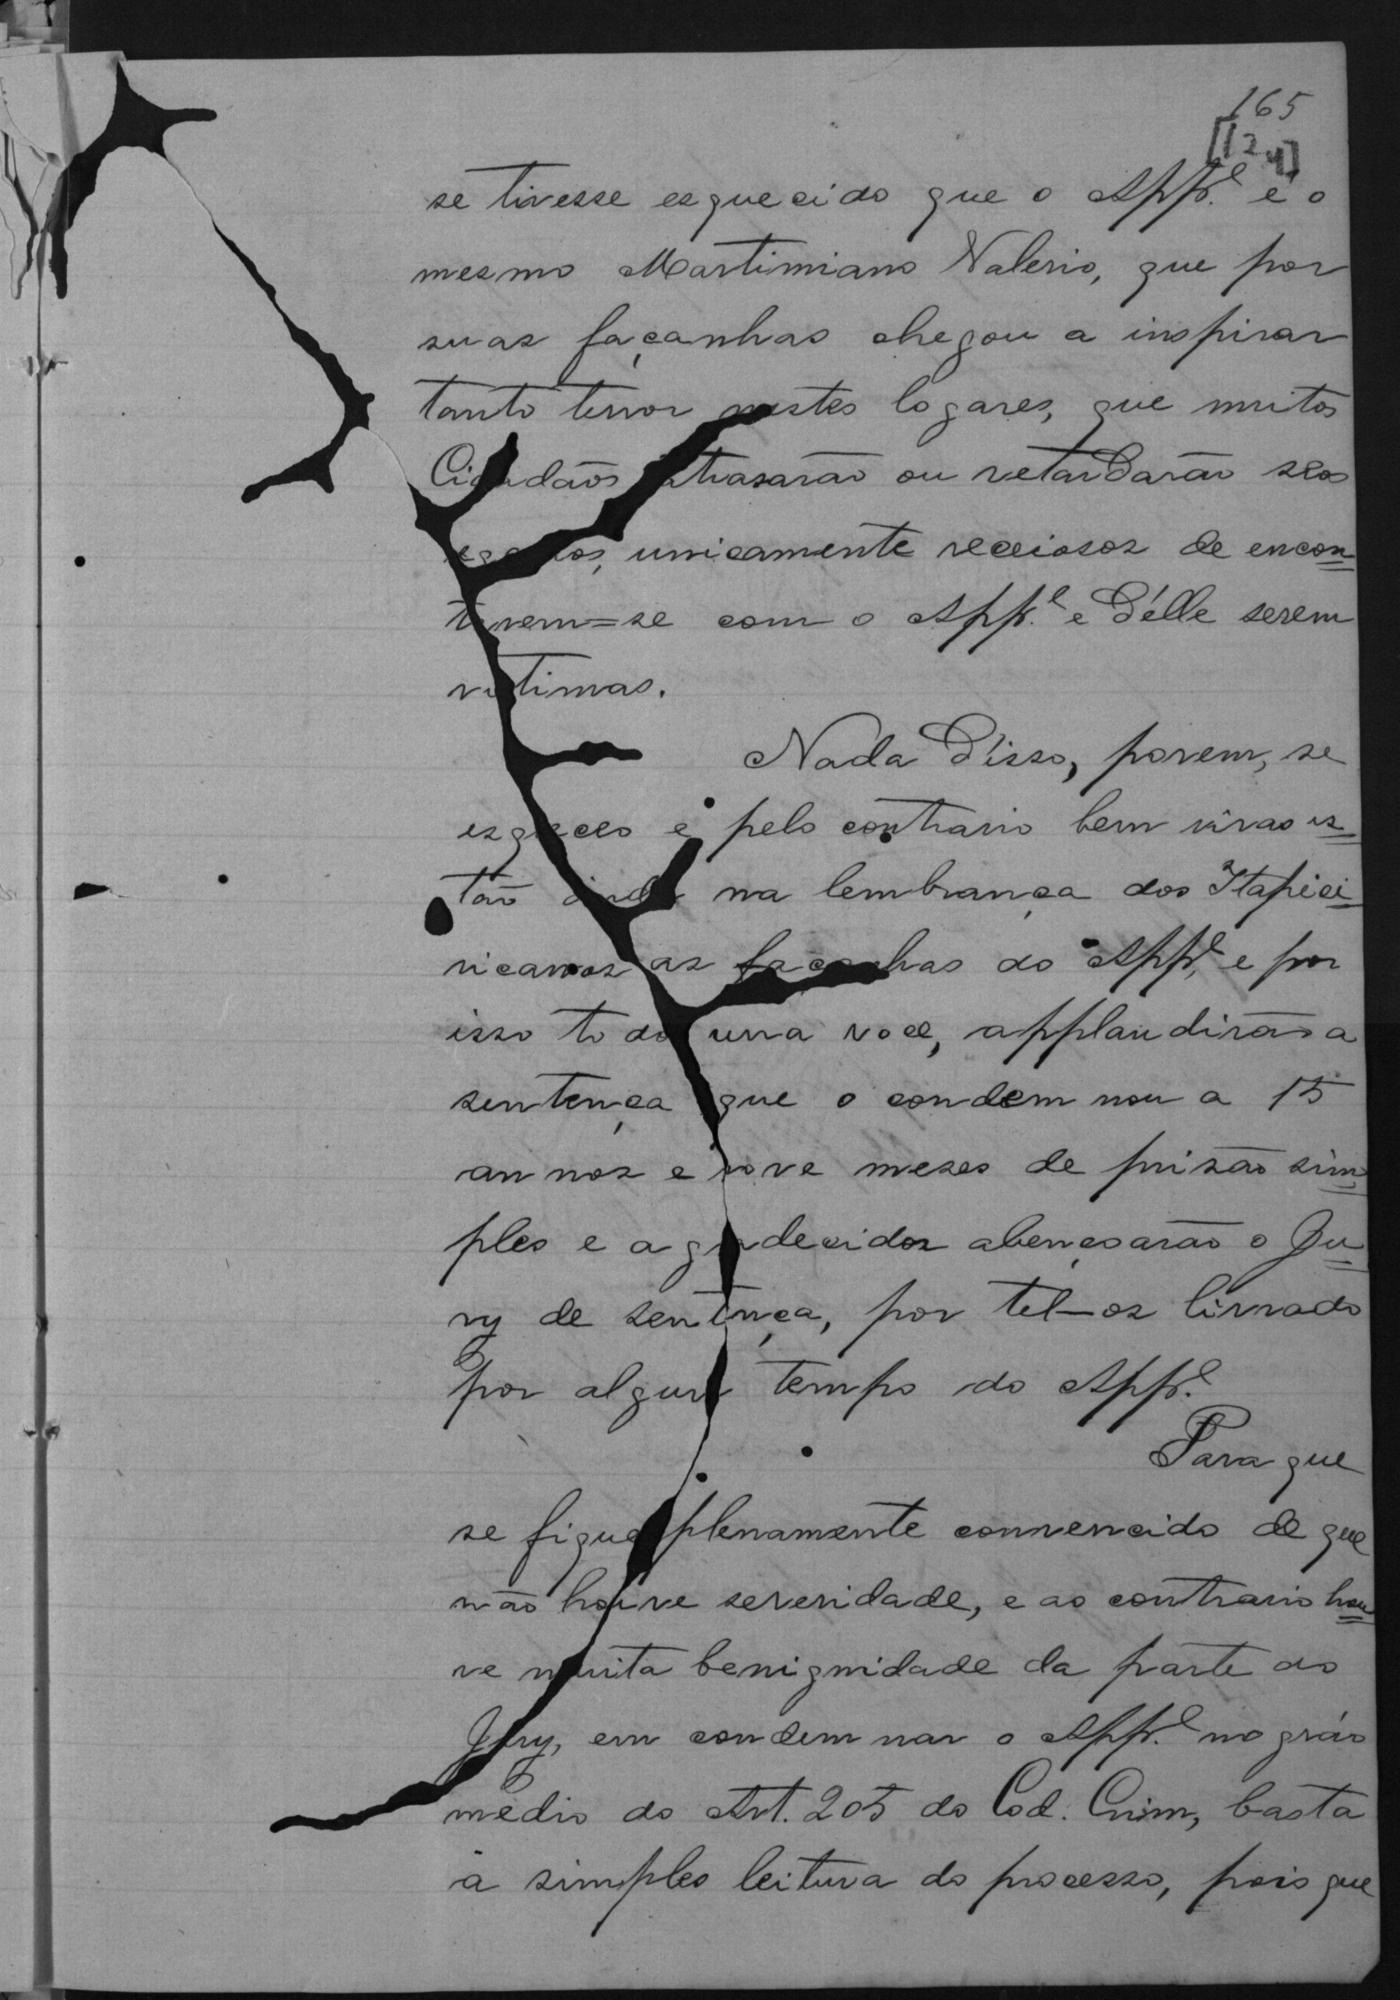 165
[124]
se tivesse esquecido que o App.e é o
mesmo Martimiano Valerio, que por
suas façanhas chegou a inspirar
tanto terror nestes logares, que muitos
Cidadãos atrasarão ou retardarão seos
unicamente receiosos de encon=
trarem=se com o App.e e d'élle serem
victimas.
Nada d'isso, porem, se
esqueceo e pelo contrario bem vivas es=
tão ainda na lembrança dos Itapici=
ricanos as façanhas do App.e, e por
isso todos una voce, applaudirão a
sentença que o condemnou a 15
annos e nove mezes de prisão sim=
ples e agradecidos abençoarão o Ju=
ry de sentença, por tel-os livrado
por algum tempo do App.e
Para que
se fique plenamente convencido de que
não houve severidade, e ao contrario hou=
ve muita benignidade da parte do
Jury, em condemnar o App.e no gráo
medio do Art. 205 do Cod. Crim, basta
a simples leitura do processo, pois que